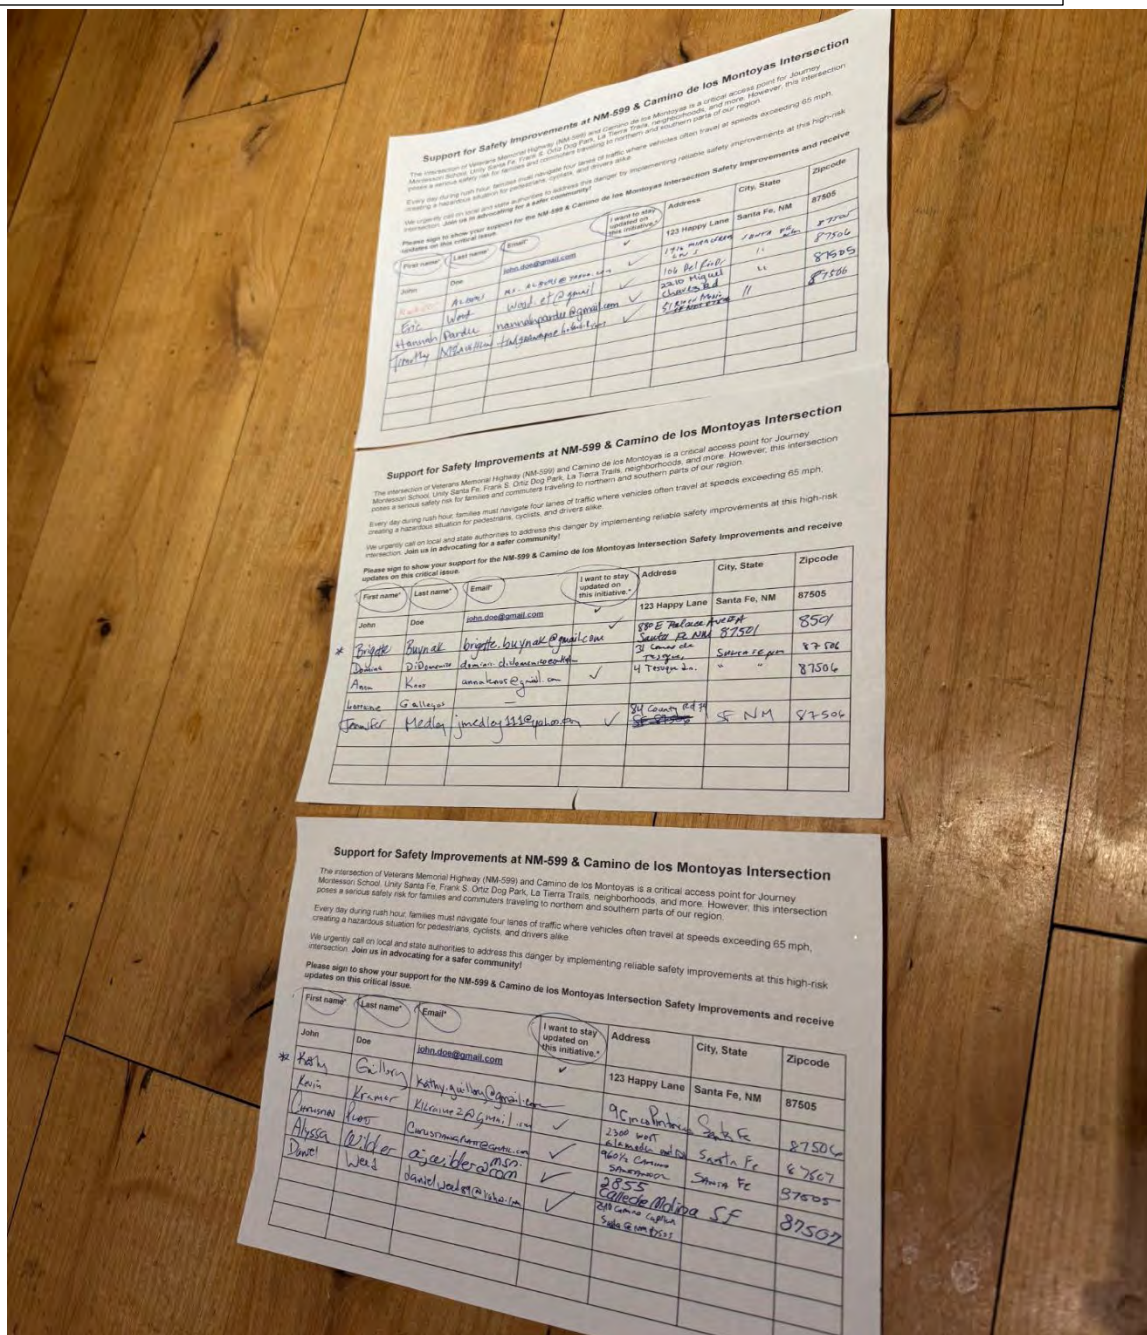 Support for Safety Improvements at NM-599 & Camino de los Montoyas Intersection
The intersection of Veterans Memorial Highway (NM-599) and Camino de los Montoyas is a critical access point for Journey
Montessori School, Unity Santa Fe, Frank S. Ortiz Dog Park, La Tierra Trails, neighborhoods, and more. However, this intersection
poses a serious safety risk for families and commuters traveling to northern and southern parts of our region.
Every day during rush hour, families must navigate four lanes of traffic where vehicles often travel at speeds exceeding 65 mph,
creating a hazardous situation for pedestrians, cyclists, and drivers alike.
We urgently call on local and state authorities to address this danger by implementing reliable safety improvements at this high-risk
intersection. Join us in advocating for a safer community!
Please sign to show your support for the NM-599 & Camino de los Montoyas Intersection Safety Improvements and receive
updates on this critical issue.
First name* Last name* Email* I want to stay updated on this initiative.* Address City, State Zipcode
John Doe john.doe@gmail.com ✓ 123 Happy Lane Santa Fe, NM 87505
✓ 87505
Eric Word word.et@gmail ✓ 106 Del Rio Dr " 87506
Hannah Pardee hannahpardee@gmail.com ✓ 2210 Miguel Chavez Rd " 87505
Timothy ✓ " 87506
Support for Safety Improvements at NM-599 & Camino de los Montoyas Intersection
The intersection of Veterans Memorial Highway (NM-599) and Camino de los Montoyas is a critical access point for Journey
Montessori School, Unity Santa Fe, Frank S. Ortiz Dog Park, La Tierra Trails, neighborhoods, and more. However, this intersection
poses a serious safety risk for families and commuters traveling to northern and southern parts of our region.
Every day during rush hour, families must navigate four lanes of traffic where vehicles often travel at speeds exceeding 65 mph,
creating a hazardous situation for pedestrians, cyclists, and drivers alike.
We urgently call on local and state authorities to address this danger by implementing reliable safety improvements at this high-risk
intersection. Join us in advocating for a safer community!
Please sign to show your support for the NM-599 & Camino de los Montoyas Intersection Safety Improvements and receive
updates on this critical issue.
First name* Last name* Email* I want to stay updated on this initiative.* Address City, State Zipcode
John Doe john.doe@gmail.com ✓ 123 Happy Lane Santa Fe, NM 87505
* Brigitte Buynak brigitte.buynak@gmail.com ✓ 880 E Palace Ave #A Santa Fe NM 87501 8501
DiDomenico Tesuque, 87506
Anna Knox annaknos@gmail.com ✓ 4 Tesuque Ln. " " 87506
Lorraine Gallegos —
Jennifer Medley jmedley111@yahoo.com ✓ 84 County Rd SF NM 87506
Support for Safety Improvements at NM-599 & Camino de los Montoyas Intersection
The intersection of Veterans Memorial Highway (NM-599) and Camino de los Montoyas is a critical access point for Journey
Montessori School, Unity Santa Fe, Frank S. Ortiz Dog Park, La Tierra Trails, neighborhoods, and more. However, this intersection
poses a serious safety risk for families and commuters traveling to northern and southern parts of our region.
Every day during rush hour, families must navigate four lanes of traffic where vehicles often travel at speeds exceeding 65 mph,
creating a hazardous situation for pedestrians, cyclists, and drivers alike.
We urgently call on local and state authorities to address this danger by implementing reliable safety improvements at this high-risk
intersection. Join us in advocating for a safer community!
Please sign to show your support for the NM-599 & Camino de los Montoyas Intersection Safety Improvements and receive
updates on this critical issue.
First name* Last name* Email* I want to stay updated on this initiative.* Address City, State Zipcode
John Doe john.doe@gmail.com ✓ 123 Happy Lane Santa Fe, NM 87505
* Kathy Santa Fe 87506
Kevin Kramer ✓ 2300 West Alameda Santa Fe 87507
✓ 960½ Camino Santa Fe 87505
Alyssa Wilder ajwilder@msn.com ✓ 2855 Calle de Molina SF 87507
Daniel Weed danielweed89@yahoo.com ✓ Camino